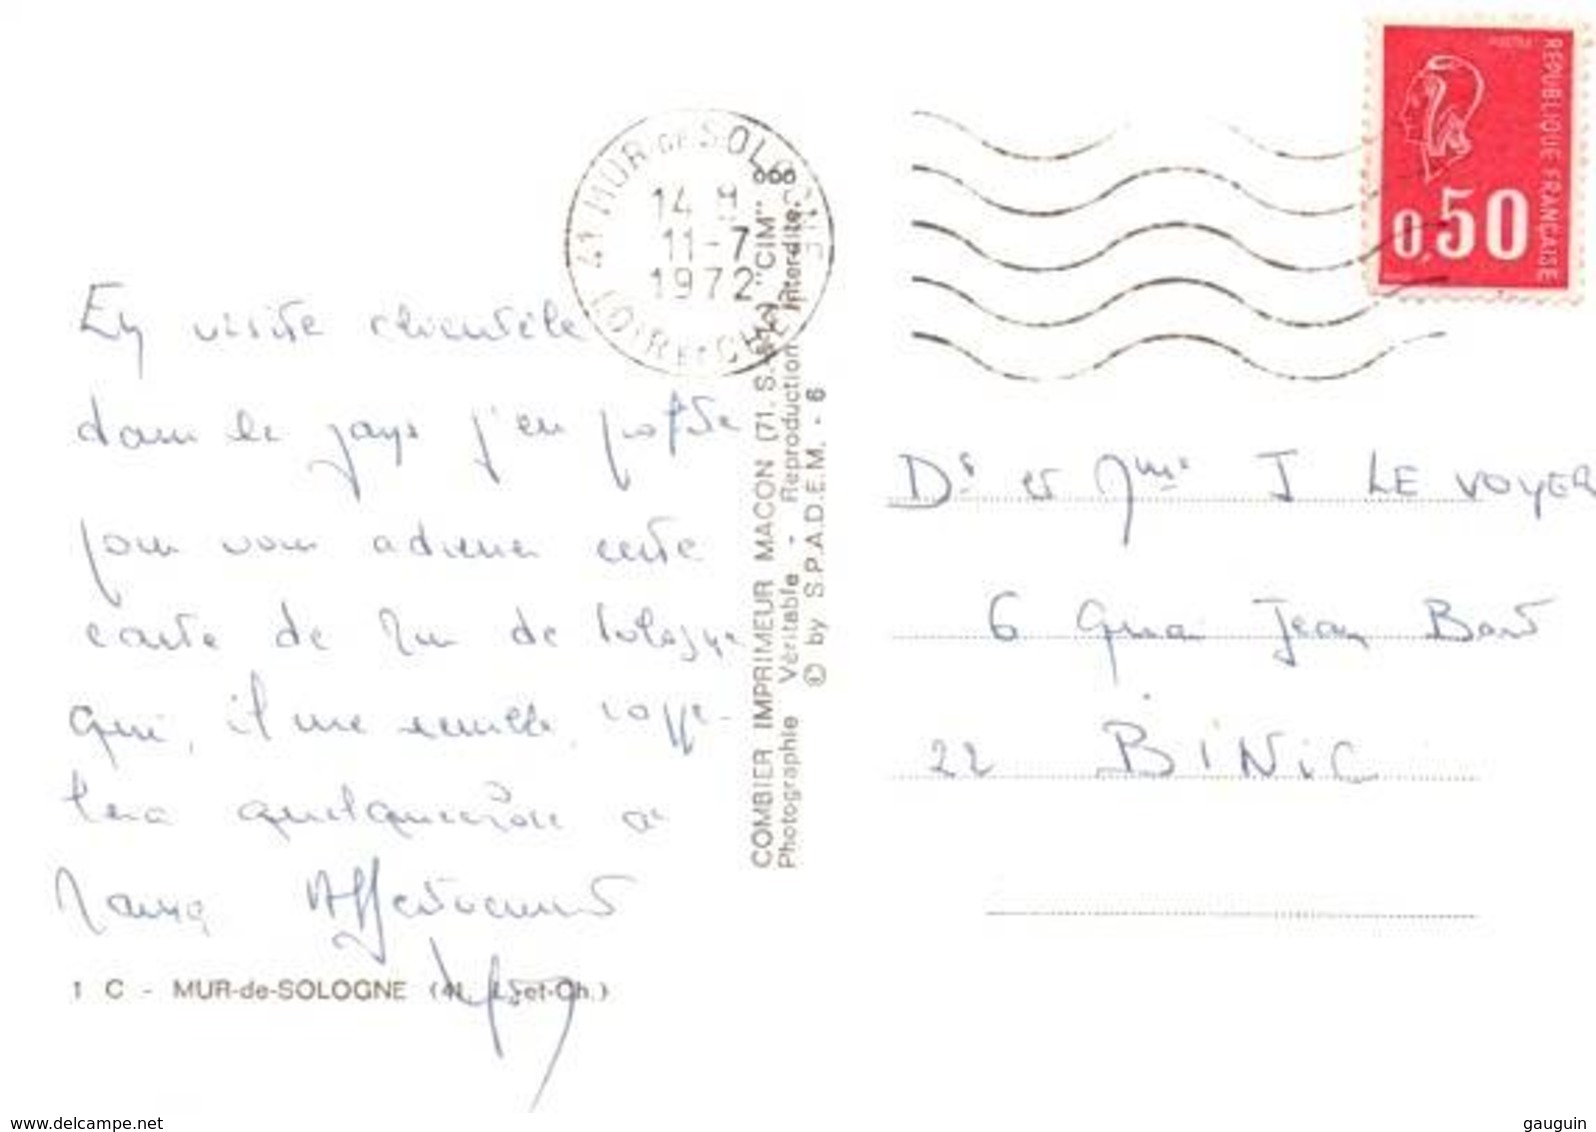 En visite clientèle
dans le pays j'en profite
pour vous adresser cette
carte de Mur de Sologne
qui, il me semble, rappe-
lera quelque chose à
Affectueusement
1 C - MUR-de-SOLOGNE (41. L.-et-Ch.)
41 MUR-DE-SOLOGNE
14 H
11-7
1972
LOIR-ET-CHER
COMBIER IMPRIMEUR MACON (71. S.-&-L.) "CIM"
Photographie Véritable - Reproduction interdite.
© by S.P.A.D.E.M. - 6
REPUBLIQUE FRANÇAISE
0,50
Dr et Mme J LE VOYER
6 Quai Jean Bart
22 BINIC
www.delcampe.net
gauguin